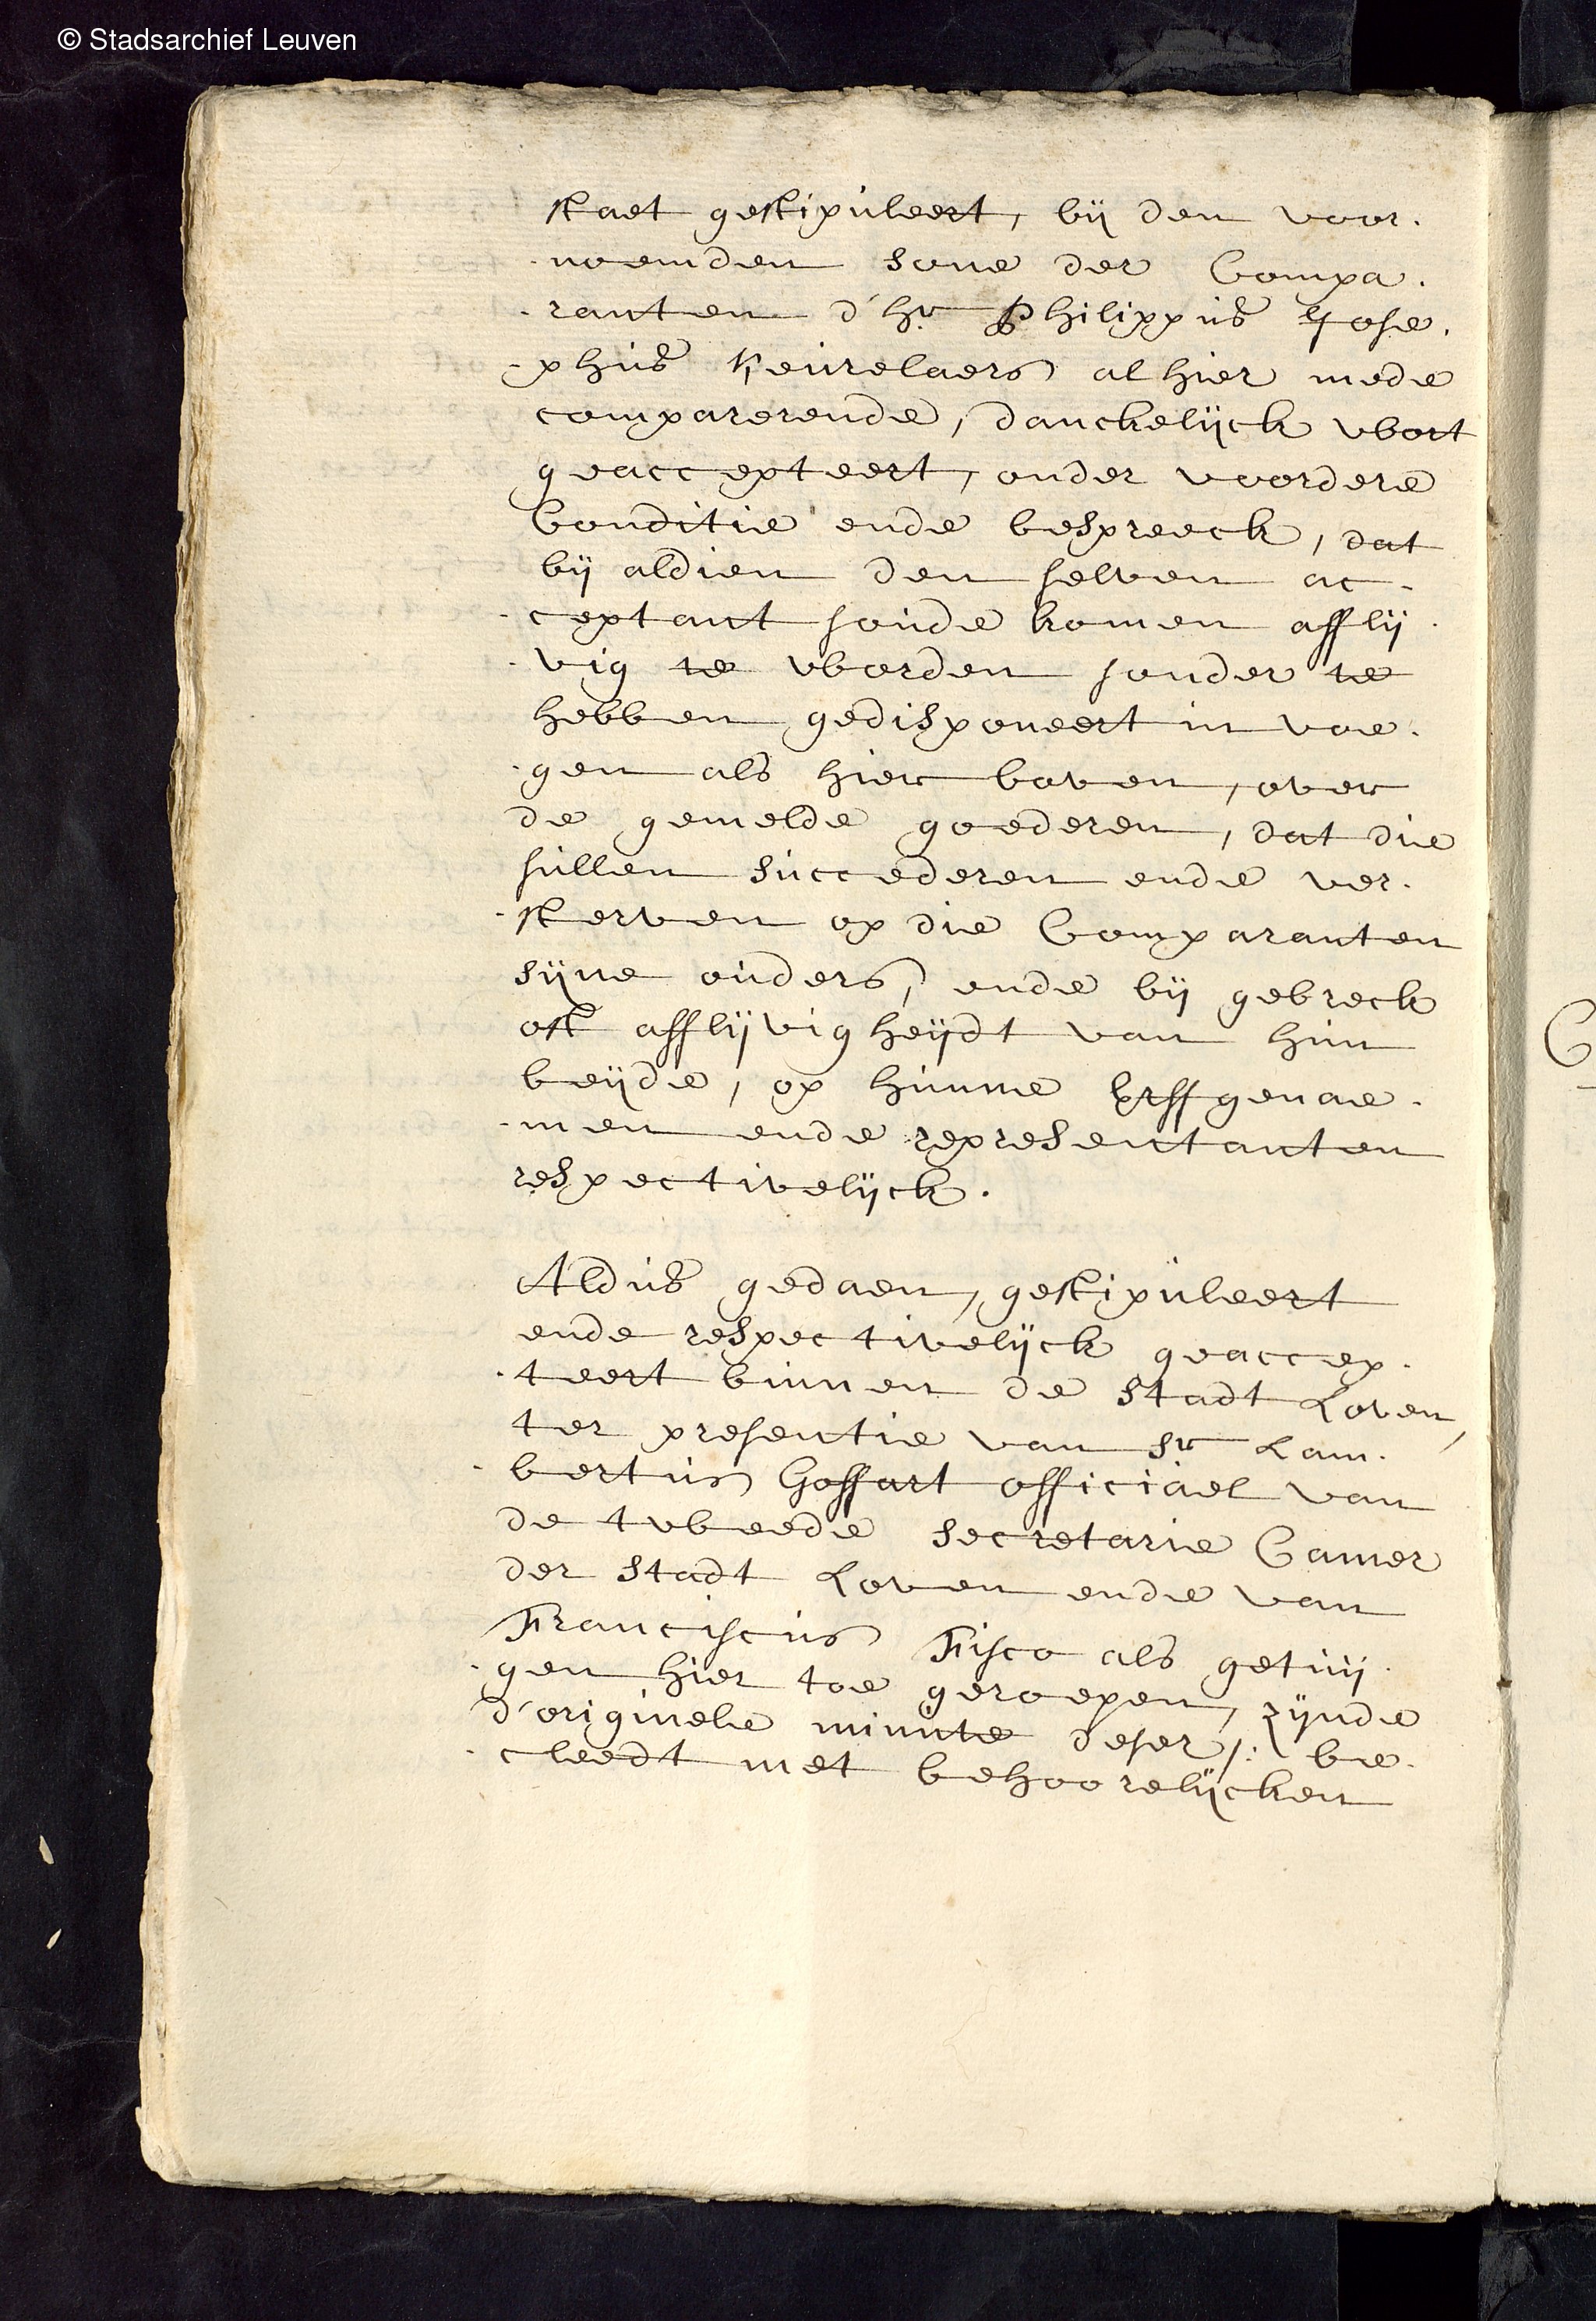 © Stadsarchief Leuven
staet gestipuleert, bij den voor.
.noemden sone der Compa.
.ranten d'hr Philippus Jose.
.phus Keurelaers alhier mede
comparerende, danckelijck wort
geaccepteert, onder voordere
Conditie ende bespreeck, dat
bij aldien den selven ac.
.ceptant soude komen afflij.
.vig te worden sonder te
hebben gedisponeert in voe.
.gen als hier boven, over
de gemelde goederen, dat die
sullen succederen ende ver.
.sterven op die Comparanten
sijne ouders, ende bij gebreck
oft afflijvigheijdt van hun
beijde, op hunne Erffgenae.
.men ende representanten
respectivelijck.
Aldus gedaen, gestipuleert
ende respectivelijck geaccep.
.teert binnen de Stadt Loven,
ter presentie van Sr Lam.
.bertus Goffart officiael van
de tweede Secretarie Camer
der Stadt Loven ende van
Franciscus Fisco als getuij.
.gen hier toe geroepen, zijnde
d'originele minute deser /: be.
.cleedt met behoorelijcken